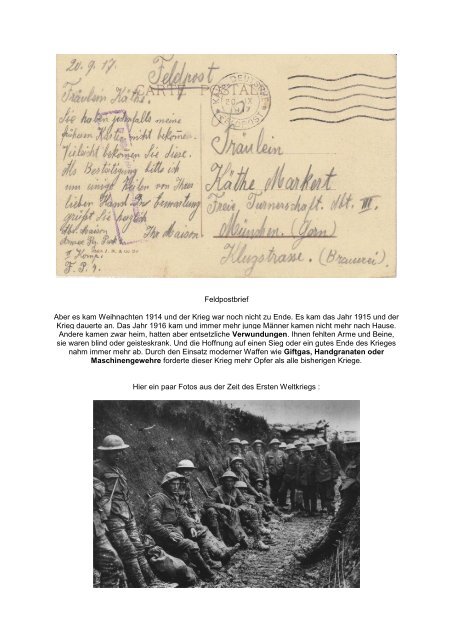 20.9.17.
Feldpost
CARTE POSTALE
Fräulein Käthe.
Sie haben jedenfalls meine
früheren Karten nicht bekommen.
Vieleicht bekommen Sie diese.
Als Bestätigung bitte ich
um einige Zeilen von Ihrer
lieben Hand. In Erwartung
grüßt Sie
Ihr Maison
Maison
Armee
F. P. 
Fräulein
Käthe Markert
Freie Turnerschaft Abt. III.
München
(Brauerei)
Feldpostbrief
Aber es kam Weihnachten 1914 und der Krieg war noch nicht zu Ende. Es kam das Jahr 1915 und der
Krieg dauerte an. Das Jahr 1916 kam und immer mehr junge Männer kamen nicht mehr nach Hause.
Andere kamen zwar heim, hatten aber entsetzliche Verwundungen. Ihnen fehlten Arme und Beine,
sie waren blind oder geisteskrank. Und die Hoffnung auf einen Sieg oder ein gutes Ende des Krieges
nahm immer mehr ab. Durch den Einsatz moderner Waffen wie Giftgas, Handgranaten oder
Maschinengewehre forderte dieser Krieg mehr Opfer als alle bisherigen Kriege.
Hier ein paar Fotos aus der Zeit des Ersten Weltkriegs :